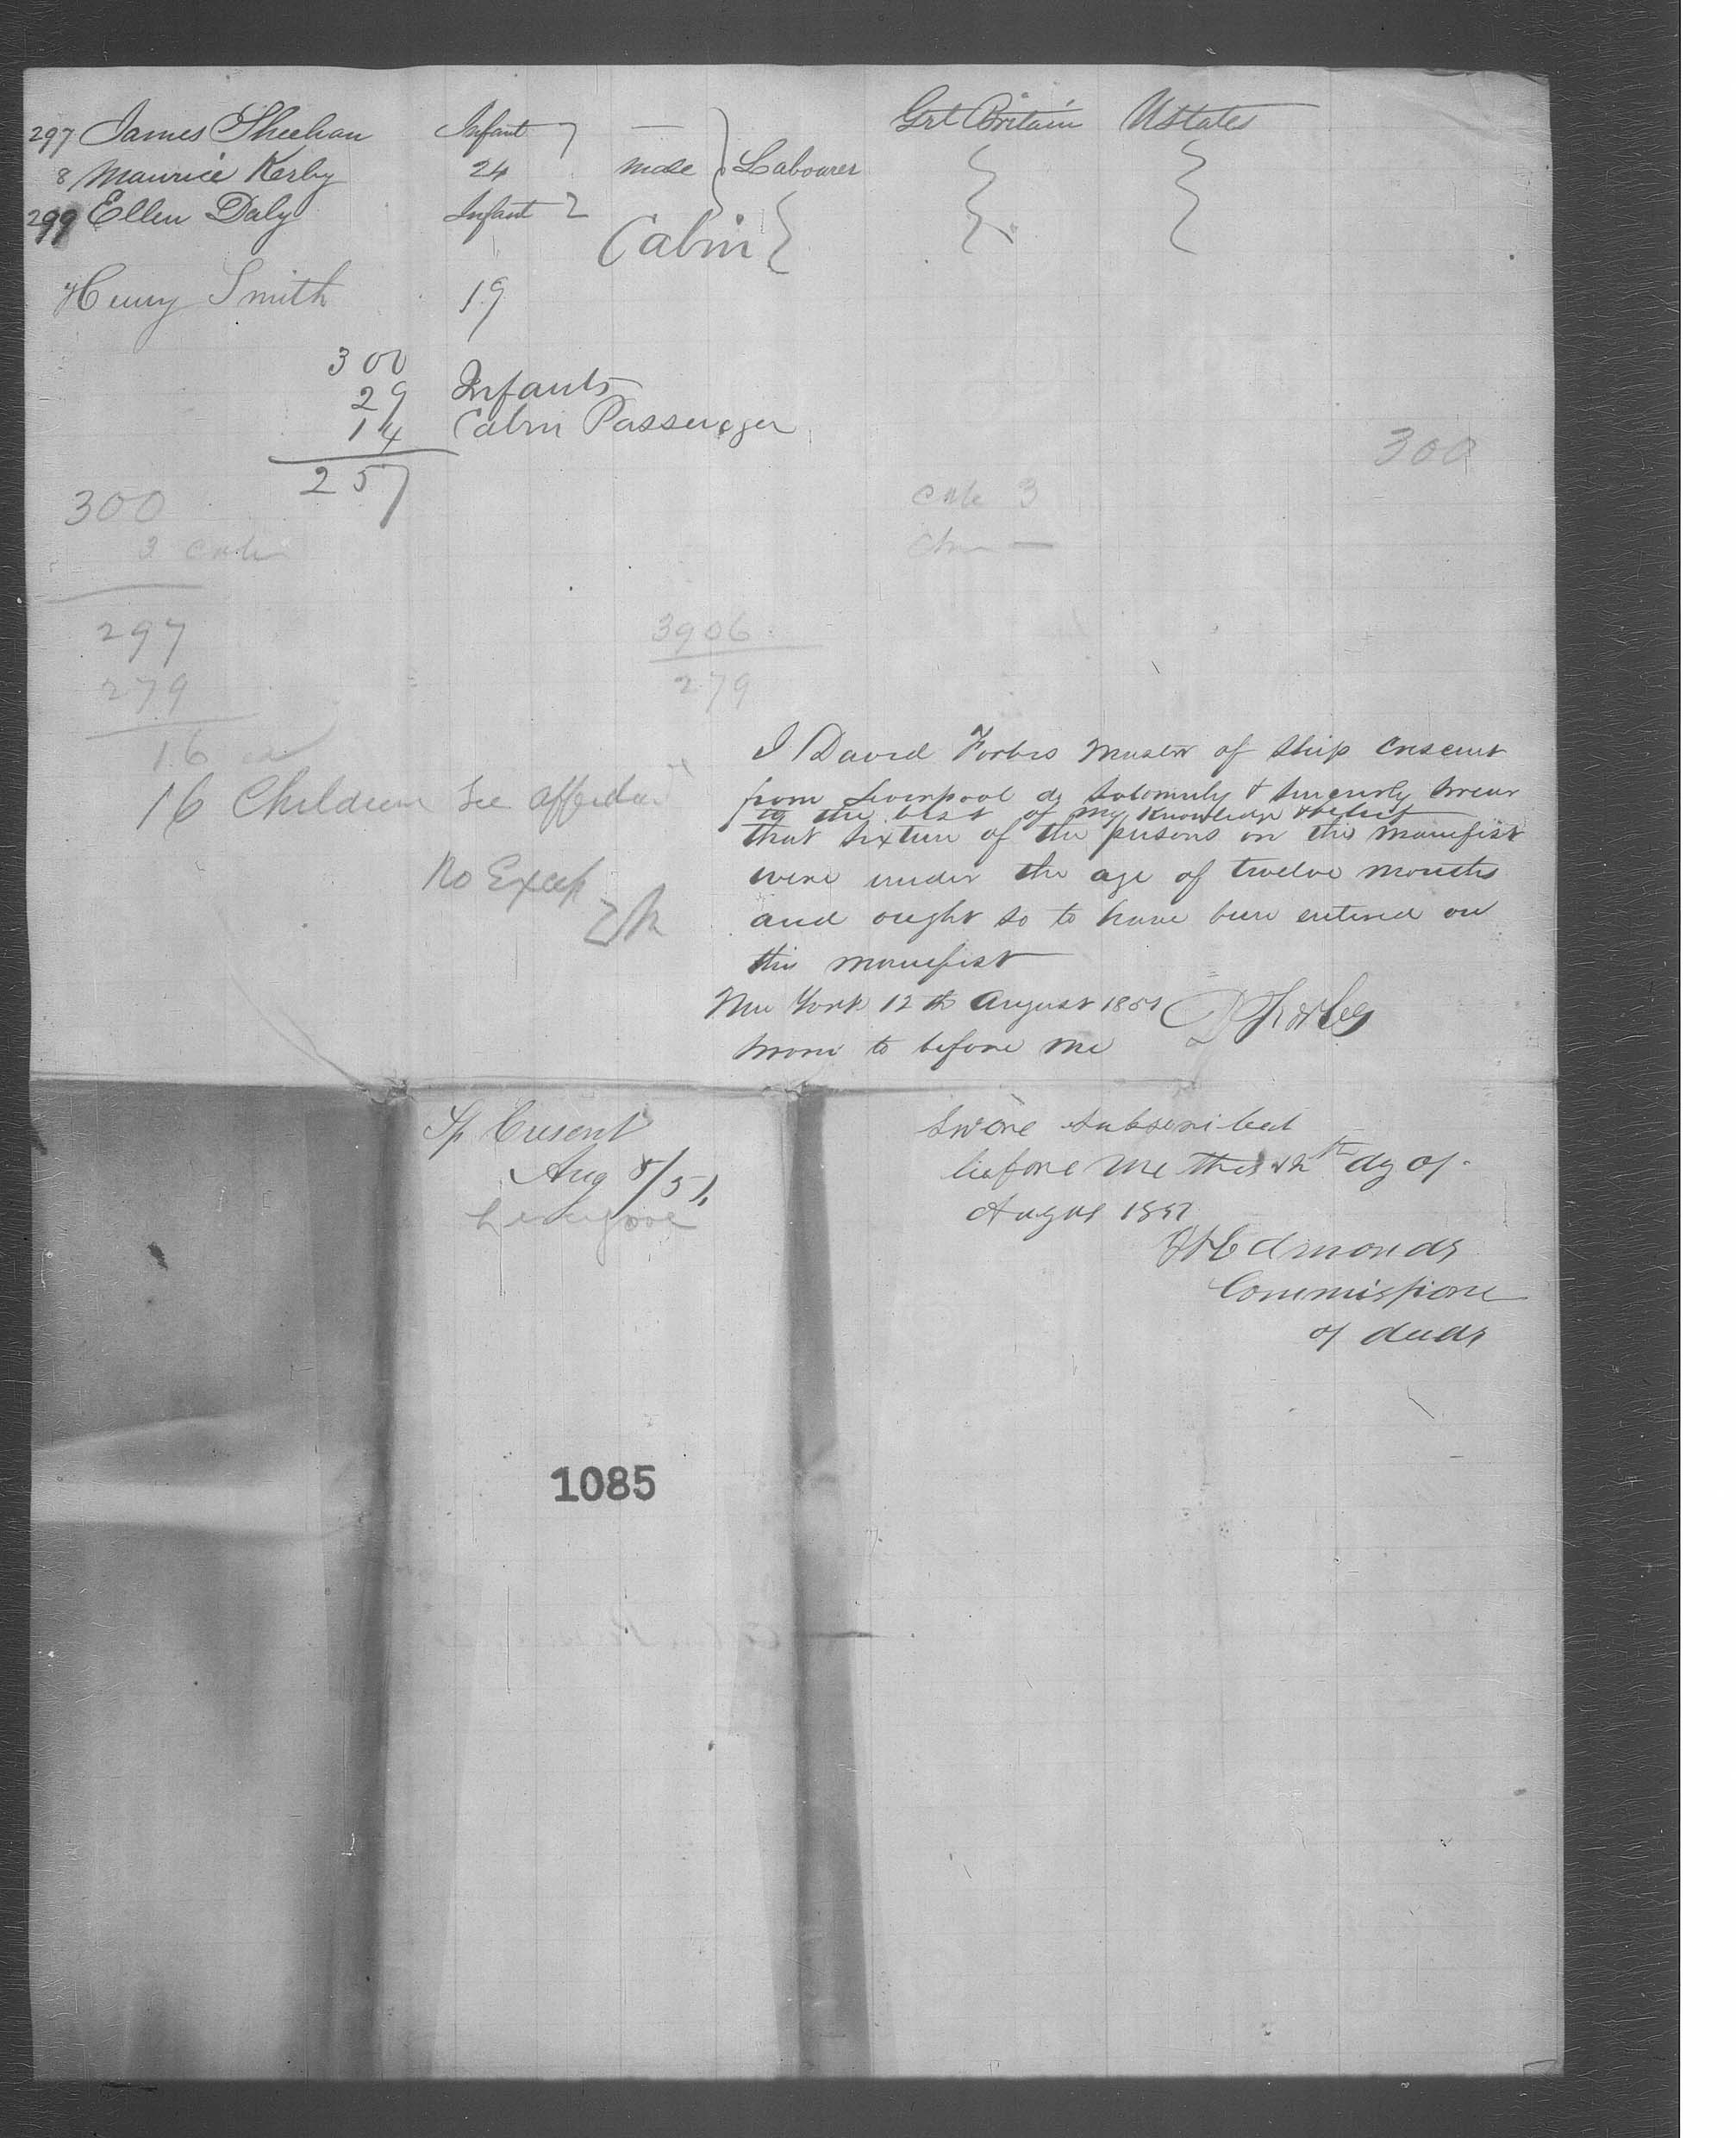 Grt Britain UStates
297 James Sheehan Infant —
8 Maurice Kerby 24 male Labourer
299 Ellen Daly Infant
Cabin
Henry Smith 19
300
29 Infants
14 Cabin Passenger
257
300
300
3
297
279
16
3906
279
16 Children See
No Excep
I David Forbes Master of Ship Crescent
from Liverpool do Solemnly & Sincerely Swear
to the best of my Knowledge & belief
that Sixteen of the persons on this Manifest
were under the age of twelve Months
and ought so to have been entered on
this manifest
New York 12th August 1851 D Forbes
Sworn to before me
Sp Cresent
Aug 8/51
Liverpool
Swore Subscribed
before me this 12th dy of
August 1851
Edmonds
Commissione
of deeds
1085